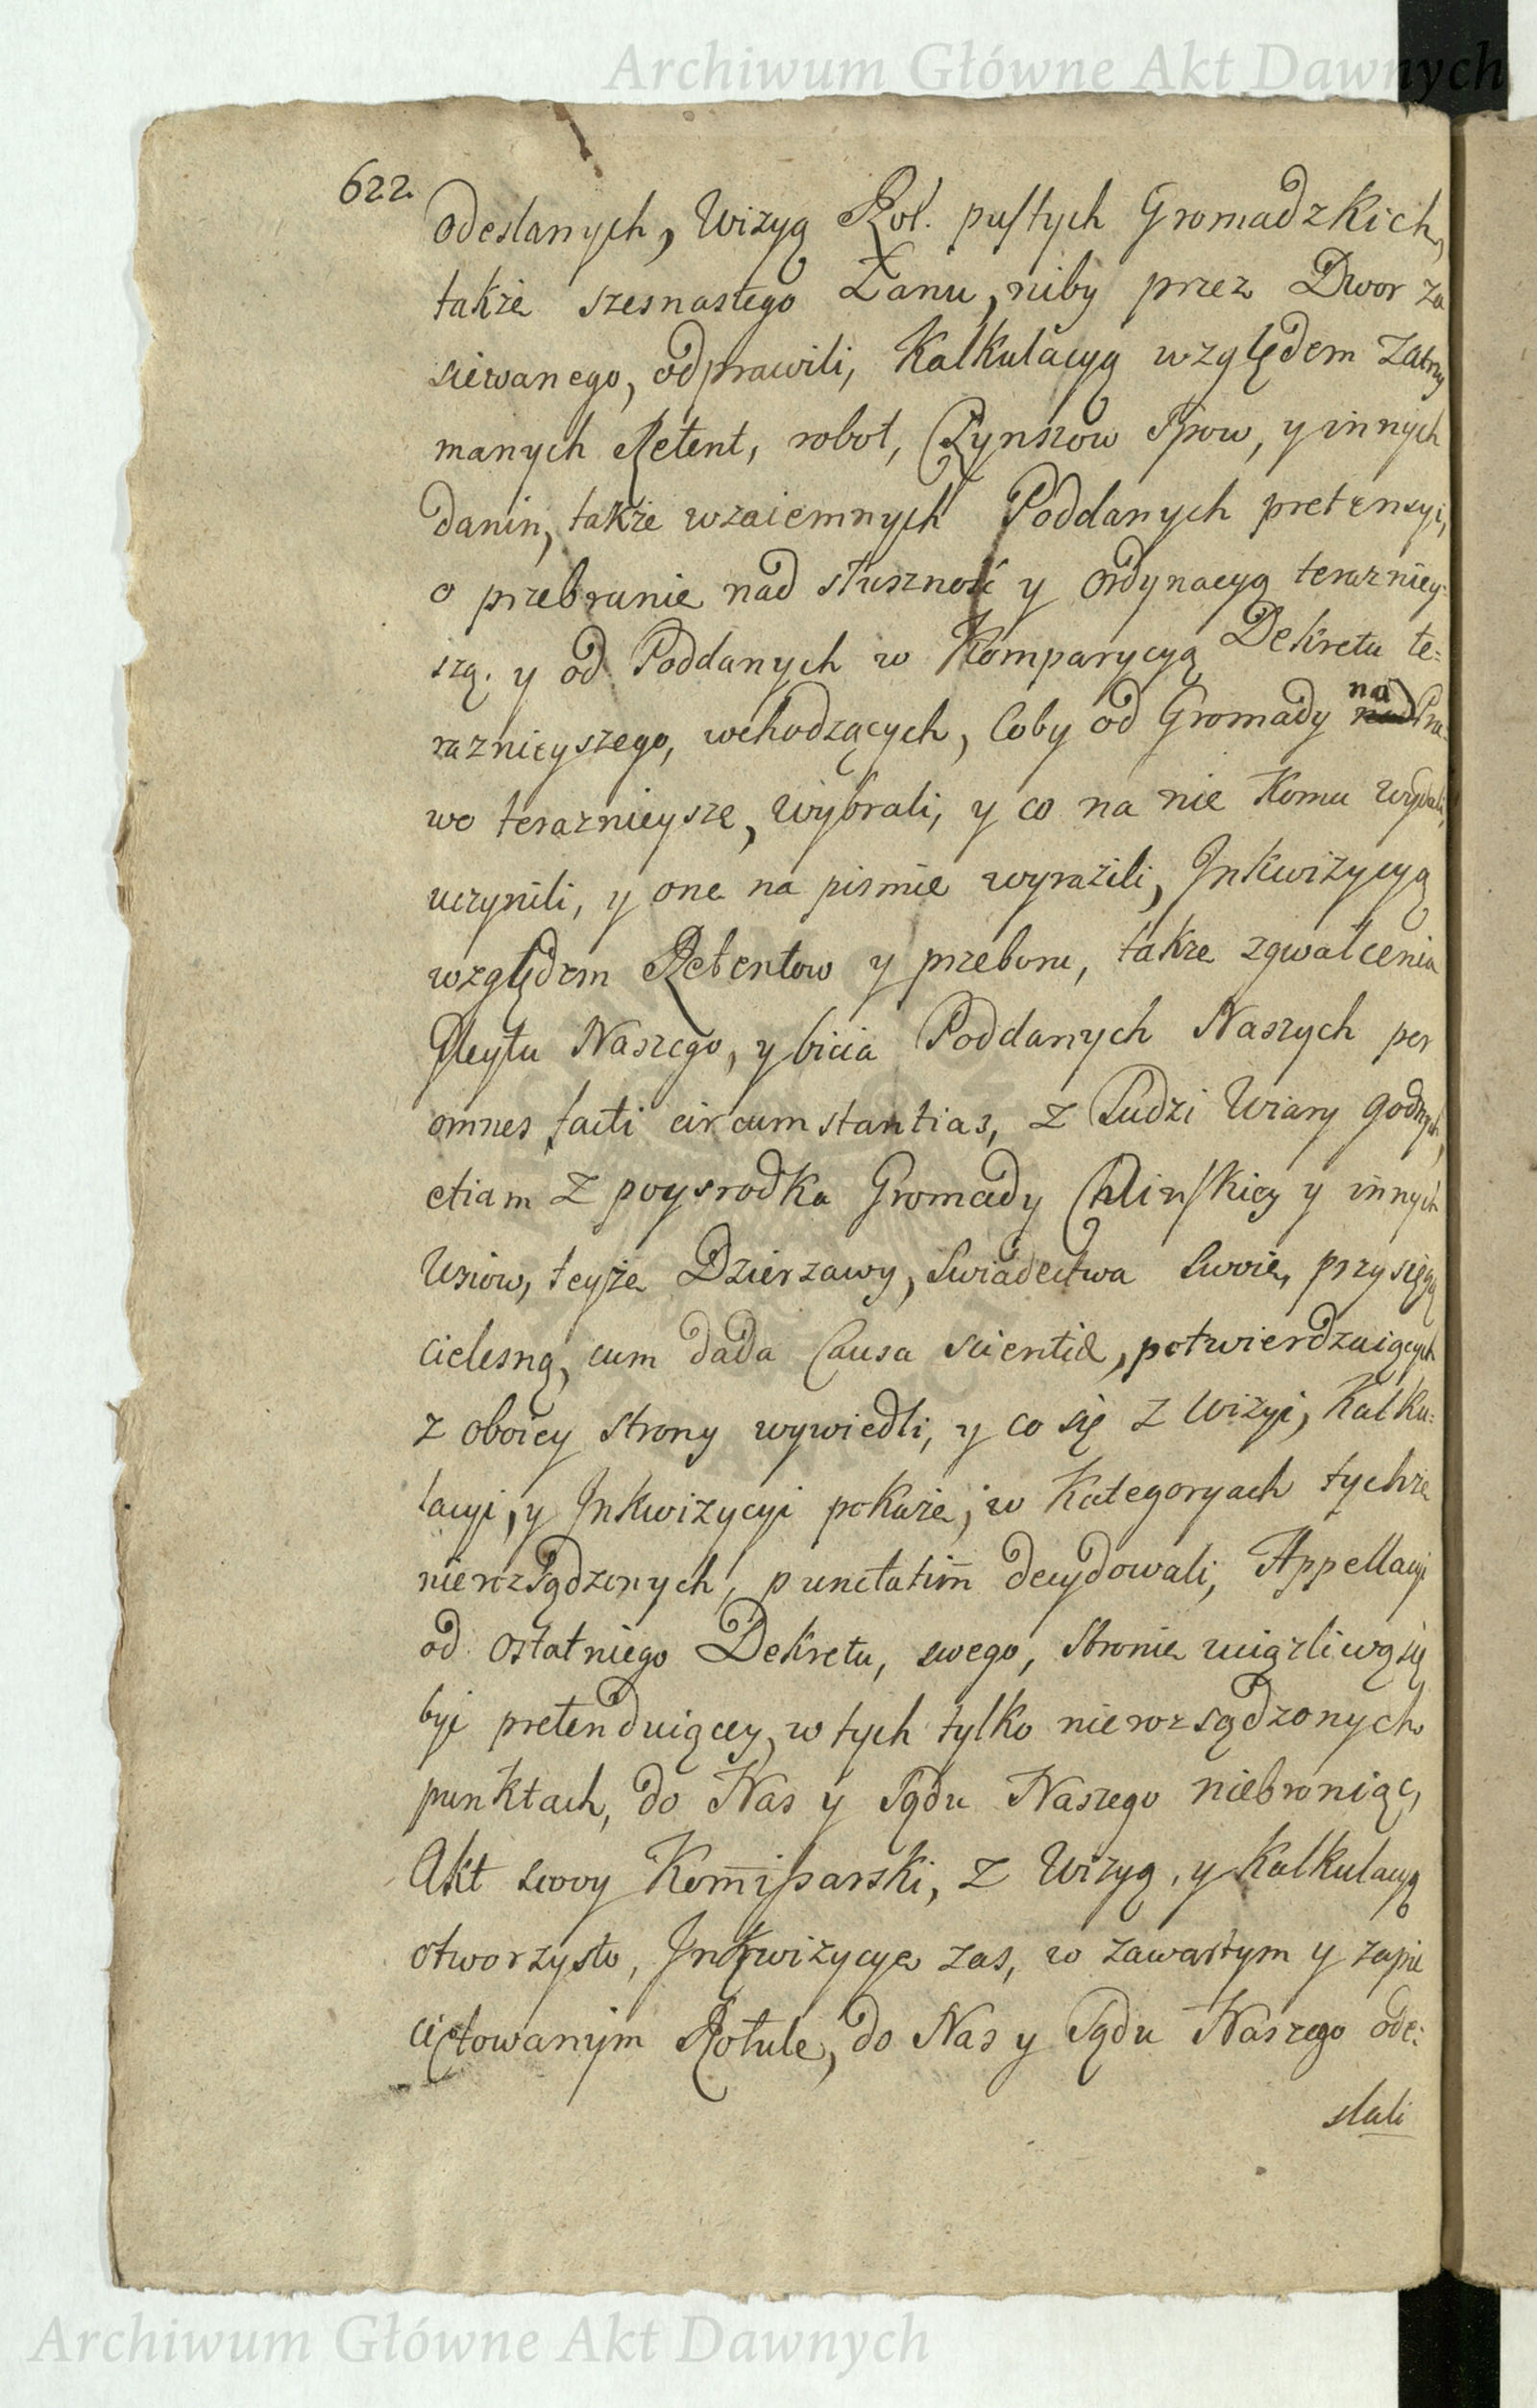 Archiwum Główne Akt Dawnych
622.
odesłanych, Wizyą Rol. pustych Gromadzkich,
także szesnastego Łanu, niby przez Dwor za
siewanego, odprawili, Kalkulacyą względem zatrzy
manych Retent, robot, Czynszow Spow, y innych
danin, także wzaiemnych Poddanych pretensyi,
o przebranie nad słuszność y Ordynacyą teraźniey-
szą. y od Poddanych w Komparycyą Dekretu te=
raznieyszego, wchodzących, Coby od Gromady na Pra-
wo teraznieysze, wybrali, y co na nie Komu wydali,
uczynili, y one na pismie wyrazili, Inkwizycyą
względem Retentow y przeboru, także zgwałcenia
Gleytu Naszego, y bicia Poddanych Naszych per
omnes facti circumstantias, z Ludzi Wiary godnych,
etiam z poysrodka Gromady Chlinskiey y innych
Wsiow, teyże Dzierzawy, Swiadectwa Swoie, przysięgą
cielesną, cum dada Causa scientiæ, potwierdzaiących
z oboiey strony wywiedli, y co się z Wizyi, Kalku=
lacyi, y Inkwizycyi pokaże, w Kategoryach tychże
nierozsądzonych, punctatim̄ decydowali, Appellacyi
od ostatniego Dekretu, swego, stronie uciążliwą się
byi pretenduiącey, w tych tylko nierozsądzonych
punktach, do Nas y Sądu Naszego niebroniąc,
Akt swoy Kom̄issarski, z Wizyą, y Kalkulacyą
otworzysto, Inkwizycye zas, w zawartym y zapie
czętowanym Rotule, do Nas y Sądu Naszego ode=
słali
Archiwum Główne Akt Dawnych